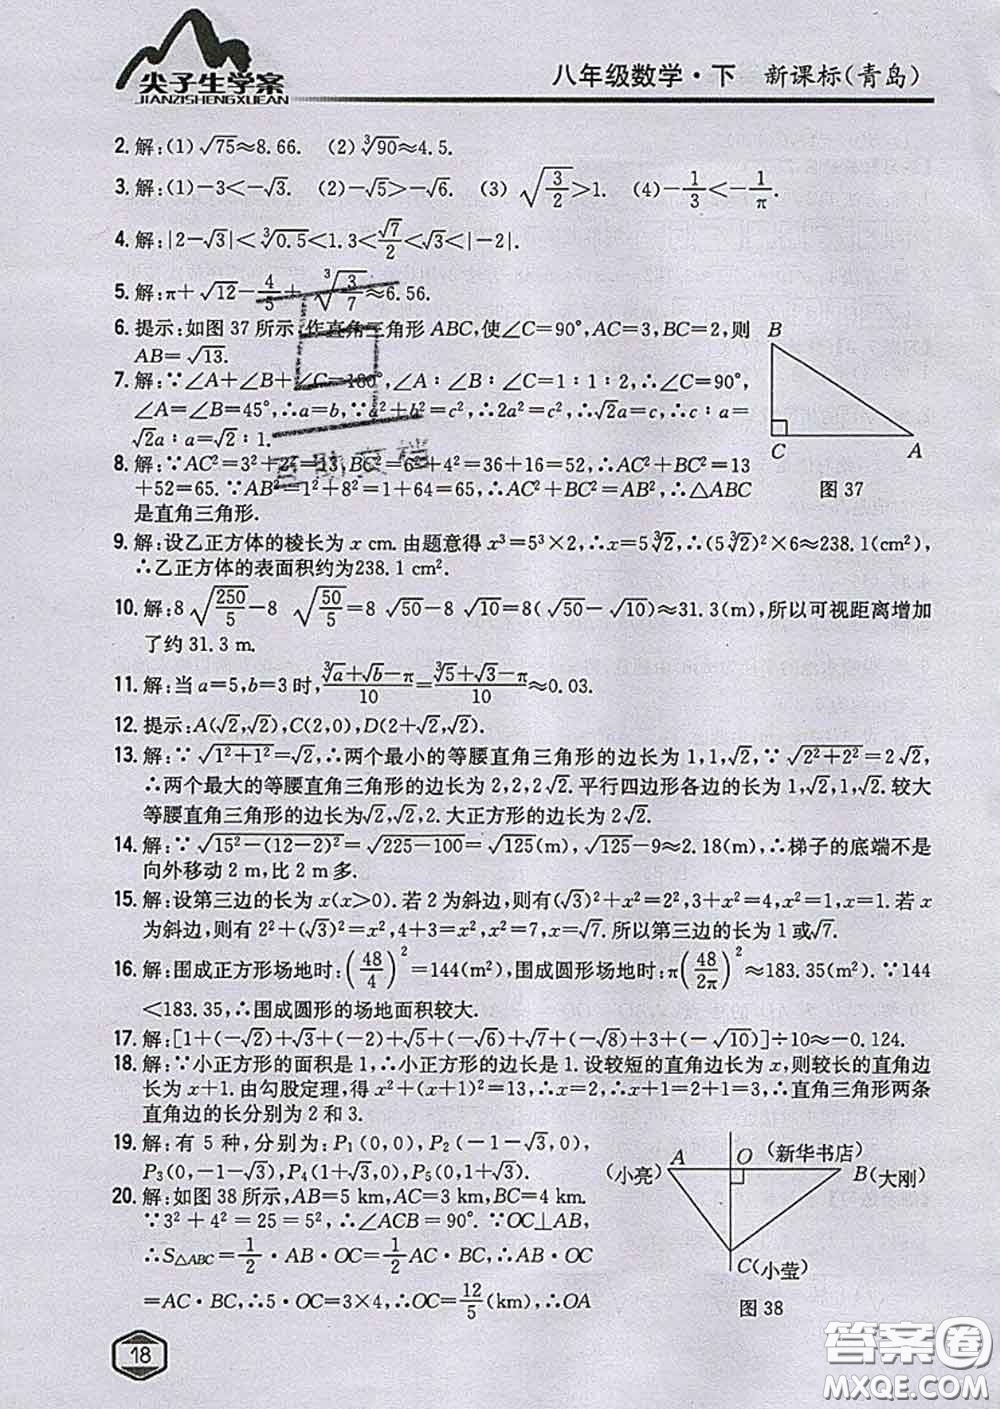 尖子生学案
JIANZISHENGXUEAN
八年级数学·下 新课标(青岛)
2. 解:(1)√75≈8.66. (2)∛90≈4.5.
3. 解:(1)-3<-√3. (2)-√5>-√6. (3)√(3/2)>1. (4)-1/3<-1/π.
4. 解:|2-√3|<∛0.5<1.3<√7/2<√3<|-2|.
5. 解:π+√12-4/5+∛(3/7)≈6.56.
6. 提示:如图 37 所示,作直角三角形 ABC,使∠C=90°,AC=3,BC=2,则
AB=√13.
7. 解:∵∠A+∠B+∠C=180°,∠A∶∠B∶∠C=1∶1∶2,∴∠C=90°,
∠A=∠B=45°,∴a=b,∵a²+b²=c²,∴2a²=c²,∴√2a=c,∴c∶a=
√2a∶a=√2∶1.
8. 解:∵AC²=3²+2²=13,BC²=6²+4²=36+16=52,∴AC²+BC²=13
+52=65.∵AB²=1²+8²=1+64=65,∴AC²+BC²=AB²,∴△ABC
是直角三角形.
B
C
A
图 37
9. 解:设乙正方体的棱长为 x cm. 由题意得 x³=5³×2,∴x=5∛2,∴(5∛2)²×6≈238.1(cm²),
∴乙正方体的表面积约为238.1 cm².
10. 解:8√(250/5)-8√(50/5)=8√50-8√10=8(√50-√10)≈31.3(m),所以可视距离增加
了约 31.3 m.
11. 解:当 a=5,b=3 时,(∛a+√b-π)/10=(∛5+√3-π)/10≈0.03.
12. 提示:A(√2,√2),C(2,0),D(2+√2,√2).
13. 解:∵√(1²+1²)=√2,∴两个最小的等腰直角三角形的边长为 1,1,√2,∵√(2²+2²)=2√2,
∴两个最大的等腰直角三角形的边长为 2,2,2√2. 平行四边形各边的长为 1,√2,1,√2. 较大
等腰直角三角形的边长为√2,√2,2. 大正方形的边长为 2√2.
14. 解:∵√(15²-(12-2)²)=√(225-100)=√125(m),√125-9≈2.18(m),∴梯子的底端不是
向外移动 2 m,比 2 m 多.
15. 解:设第三边的长为 x(x>0). 若 2 为斜边,则有(√3)²+x²=2²,3+x²=4,x²=1,x=1. 若 x
为斜边,则有 2²+(√3)²=x²,4+3=x²,x²=7,x=√7. 所以第三边的长为 1 或√7.
16. 解:围成正方形场地时:(48/4)²=144(m²),围成圆形场地时:π(48/2π)²≈183.35(m²).∵144
<183.35,∴围成圆形的场地面积较大.
17. 解:[1+(-√2)+√3+(-2)+√5+(-√6)+√7+(-√8)+3+(-√10)]÷10≈-0.124.
18. 解:∵小正方形的面积是 1,∴小正方形的边长是 1. 设较短的直角边长为 x,则较长的直角边
长为 x+1. 由勾股定理,得 x²+(x+1)²=13,∴x=2,∴x+1=2+1=3,∴直角三角形两条
直角边的长分别为 2 和 3.
19. 解:有 5 种,分别为:P₁(0,0),P₂(-1-√3,0),
P₃(0,-1-√3),P₄(1+√3,0),P₅(0,1+√3).
20. 解:如图 38 所示,AB=5 km,AC=3 km,BC=4 km.
∵3²+4²=25=5²,∴∠ACB=90°.∵OC⊥AB,
∴S△ABC=1/2·AB·OC=1/2AC·BC,∴AB·OC
=AC·BC,∴5·OC=3×4,∴OC=12/5(km),∴OA
A
(小亮)
O
(新华书店)
B(大刚)
C(小莹)
图 38
18
答案圈
MXQE.COM